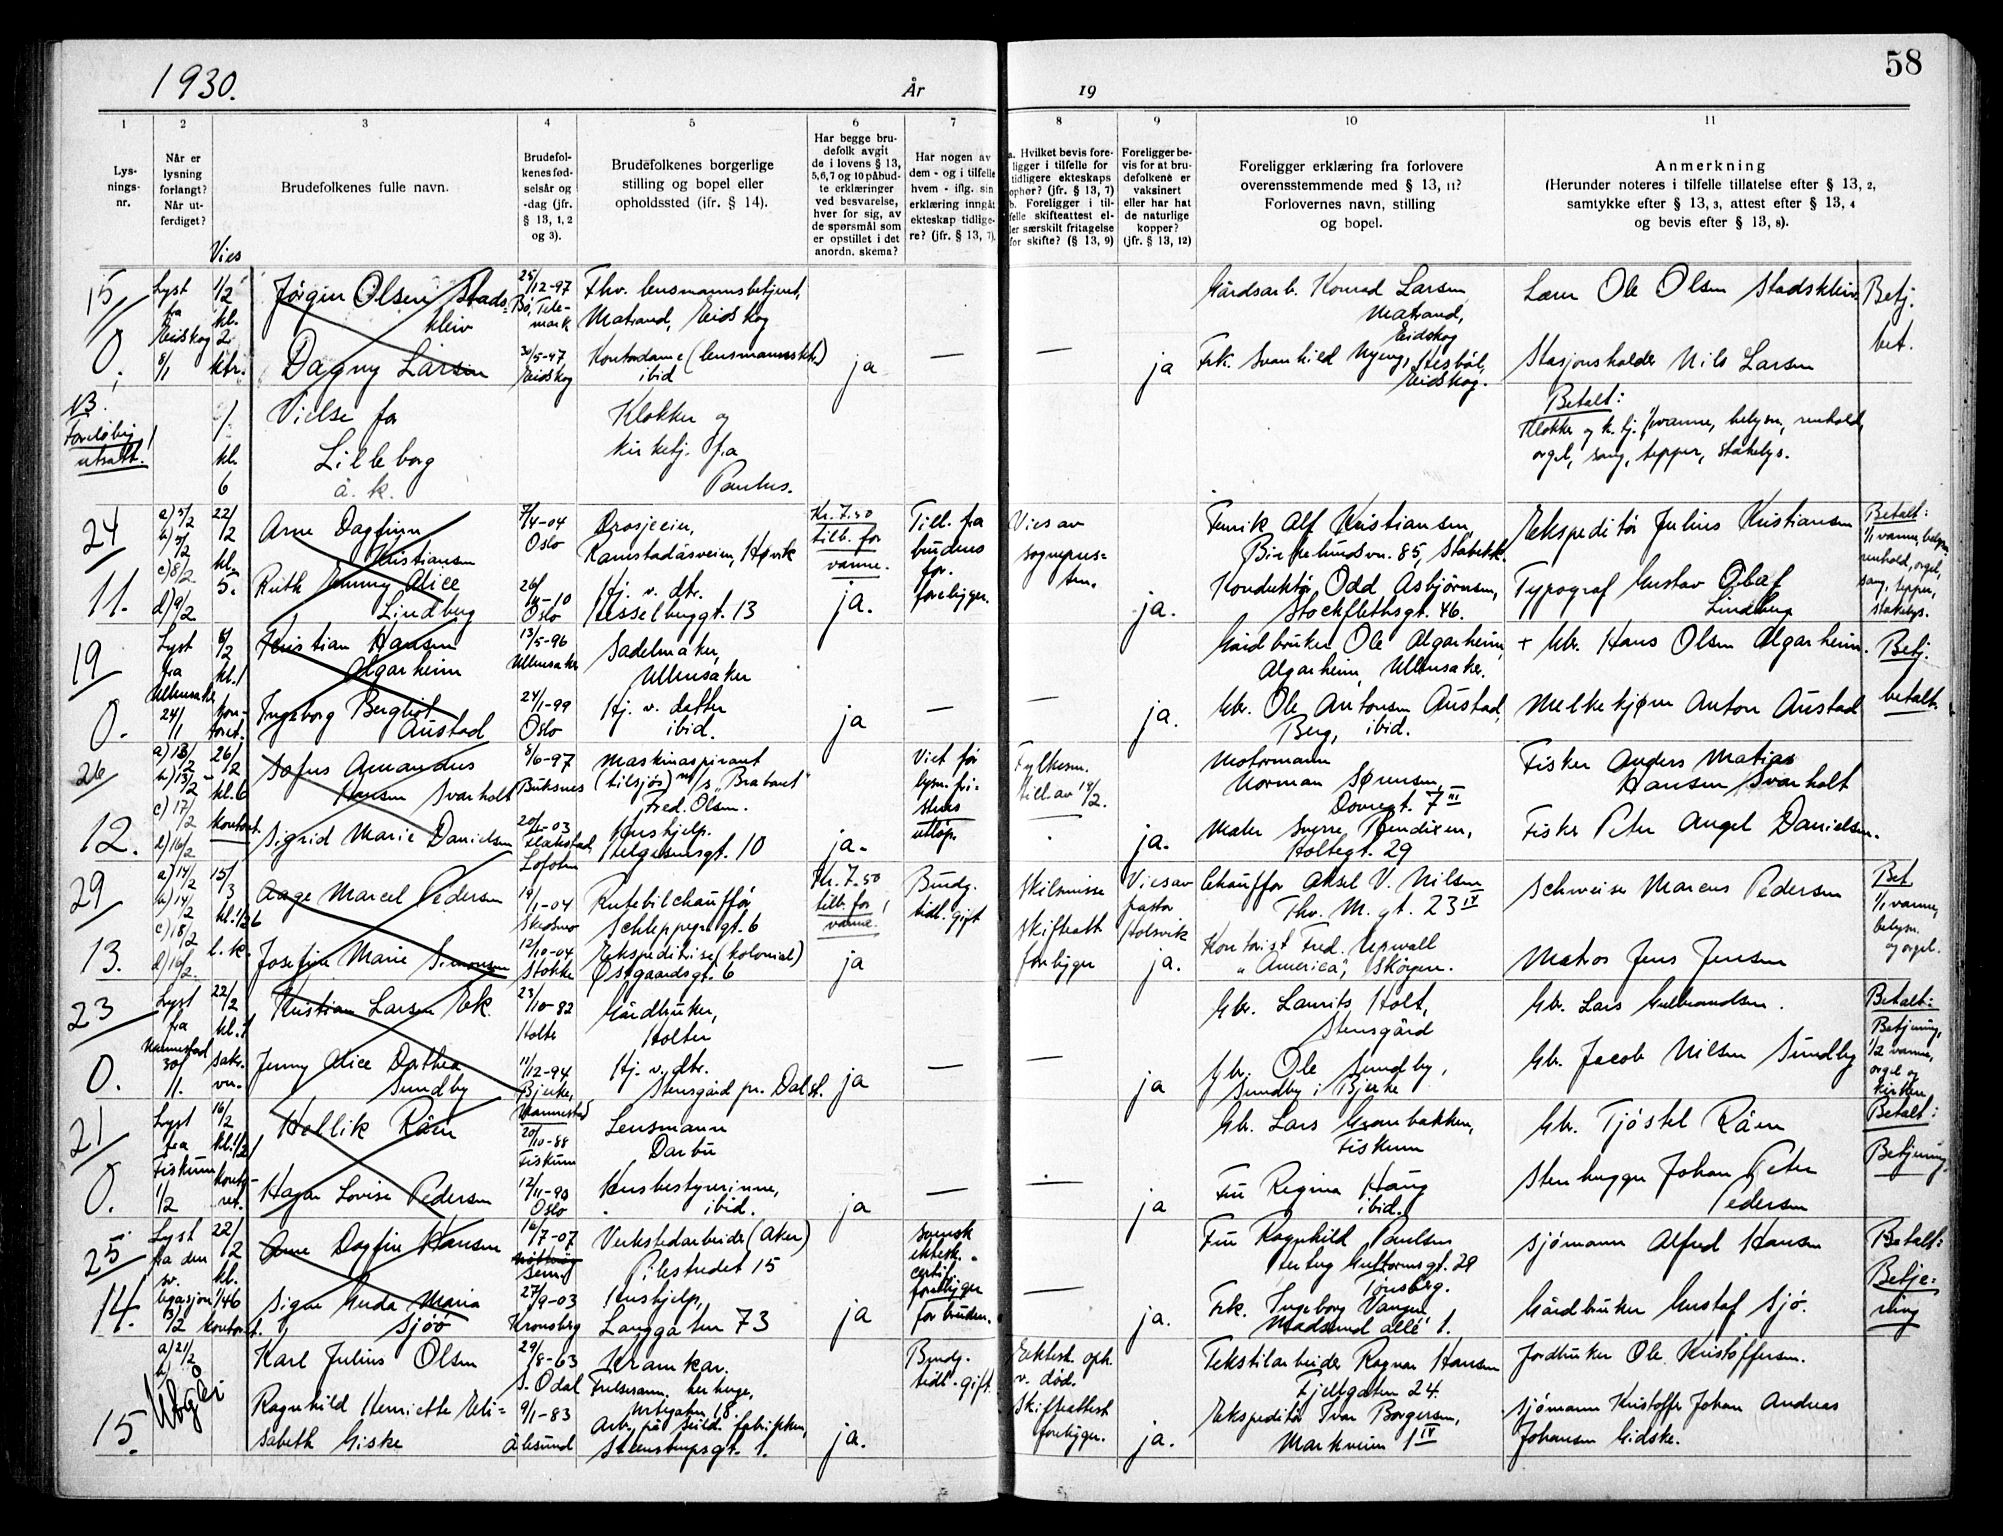 58
1930.
År
19
1
2
3
4
5
6
7
8
9
10
11
Lys-
nings-
nr.
Når er
lysning
forlangt?
Når ut-
ferdiget?
Vies
Brudefolkenes fulle navn.
Brudefol-
kenes fød-
selsår og
-dag (jfr.
§ 13, 1, 2
og 3).
Brudefolkenes borgerlige
stilling og bopel eller
opholdssted (jfr. § 14).
Har begge bru-
defolk avgit
de i lovens § 13,
5, 6, 7 og 10 påbud-
te erklæringer
ved besvarelse,
hver for sig, av
de spørsmål som
er opstillet i det
anordn. skema?
Har nogen av
dem - og i tilfelle
hvem - iflg. sin
erklæring inngåt
ekteskap tidlige-
re? (jfr. § 13, 7).
a. Hvilket bevis fore-
ligger i tilfelle for
tidligere ekteskaps
ophør? (jfr. § 13, 7)
b. Foreligger i til-
felle skifteattest el-
ler særskilt fritagelse
for skifte? (§ 13, 9)
Foreligger be-
vis for at bru-
defolkene er
vaksinert
eller har hat
de naturlige
kopper?
(jfr. § 13, 12)
Foreligger erklæring fra forlovere
overensstemmende med § 13, 11?
Forlovernes navn, stilling
og bopel.
Anmerkning
(Herunder noteres i tilfelle tillatelse efter § 13, 2,
samtykke efter § 13, 3, attest efter § 13, 4
og bevis efter § 13, 8).
15
0.
Lyst
fra
Eidskog
8/1
1/2
kl.
2
ktr.
Jørgen Olsen Stads-
kleiv
25/12-97
Bø, Tele-
mark
Fhv. lensmannsbetjent,
Matrand, Eidskog
Gårdsarb. Konrad Larsen
Matrand,
Eidskog
Lærer Ole Olsen Stadskleiv
Betj.
bet.
Dagny Larsen
30/5-97
Eidskog
Kontordame
ibid
ja
—
—
ja
Frk. Svanhild Nyeng,
Eidskog.
Stasjonsholder Nils Larsen
NB.
Foreløbig
utsatt!
kl.
6
Vielse for
Lilleborg
å. k.
Klokker og
kirketj. fra
Paulus.
Betalt:
Klokker og k. tj. 1/1 varme, belysn, renhold,
orgel, sang, tepper, stakelys.
24
11.
a) 5/2
b) 5/2
c) 8/2
d) 9/2
22/2
kl.
5.
Arne Dagfinn
Kristiansen
7/4-04
Oslo
Drosjeeier,
Ramstadåsveien, Høvik
Kr. 7.50
tilb. for
varme.
Till. fra
brudens
for.
foreligger.
Vies av
sogneprs-
ten.
Fenrik Alf Kristiansen,
Birkelundsvn. 85, Stabekk.
Ekspeditør Julius Kristiansen
Betalt:
1/1 varme, belysn,
renhold, orgel,
sang, tepper,
stakelys.
Ruth Jenny Alice
Lindberg
Oslo
Hj. v. dtr.
Hesselberggt. 13
ja.
ja.
Konduktør Odd Asbjørnsen,
Stockflethsgt. 46.
Typograf Gustav Olaf
Lindberg
19
0.
Lyst
fra
Ullensaker
24/1
8/2
kl. 1
kon-
toret.
Kristian Hansen
Algarheim
13/5-96
Ullensaker
Sadelmaker,
Ullensaker
Gårdbruker Ole Algarheim,
Algarheim, Ullensaker.
+ Gbr. Hans Olsen Algarheim.
Betj.
betalt.
Ingeborg Bergliot
Austad
24/1-99
Oslo
Hj. v. datter
ibid.
ja
—
—
ja.
Gbr. Ole Antonsen Austad,
Berg, ibid.
Melkekjører Anton Austad
26
12.
a) 13/2
b) 13/2
c) 17/2
d) 16/2
26/2
kl. 6
kontoret.
Sofus Amandus
Hansen Svarholt
8/6-97
Buksnes
Maskinaspirant
(tilsjøs) m/s "Brabant"
Fred. Olsen.
Viet før
lysn. fri-
stens
utløp.
Fylkesm.
till. av 14/2.
Motormann
Norman Sørensen,
Dovregt. 7 III
Fisker Anders Matias
Hansen Svarholt
Sigrid Marie Danielsen
Flakstad,
Lofoten
Hushjelp.
Helgesensgt. 10
ja.
ja.
Maler Sverre Bendixen,
Holtegt. 29
Fisker Peter Angel Danielsen.
29
13.
a) 14/2
b) 14/2
c) 18/2
d) 16/2
15/3
kl. 1/2 6
l. k.
Aage Marcel Pedersen
19/1-04
Skedsmo
Rutebilchauffør
Schleppegr.gt. 6
Kr. 7.50
tilb. for
varme.
Brudg.
tidl. gift
Skilsmisse
Skifteatt
foreligger
Vies av
pastor
Holsvik
ja.
Chauffør Aksel V. Nilsen
Thv. M. gt. 23 IV
Schweiser Marcus Pedersen
Bet
1/1 varme,
belysn.
og orgel.
Josefine Marie Simonsen
12/10-04
Stokke
Ekspeditrise (kolonial)
Østgaardsgt. 6
ja
Kontorist Fred. Urwall
"America", Skøyen.
Matros Jens Jensen
23
0.
Lyst
fra
Nannestad
30/1.
22/2
kl. 1
sakr.
Kristian Larsen Eek.
23/10-82
Holte
Gårdbruker,
Holter
Gbr. Laurits Holt,
Stensgård
Gbr. Lars Gulbrandsen.
Betalt:
Betjening,
1/2 varme,
orgel og
kirken
Jenny Alice Dorthea
Sundby
11/12-94
Bjerke,
Nannestad
Hj. v. dtr.
Stensgård pr. Dal st.
ja
—
—
ja
Gbr. Ole Sundby,
Sundby i Bjerke
Gbr. Jacob Nilsen Sundby
21
0.
Lyst
fra
Fiskum
1/2
16/2
kl. 1/2 1
konto-
ret.
Hellik Råen
20/10-88
Fiskum
Lensmann
Darbu
Gbr. Lars Grønbakken,
Fiskum
Gbr. Tjøstel Råen
Betalt:
Betjening.
Hagar Lovise Pedersen
12/11-90
Oslo
Husbestyrerinne,
ibid.
ja
—
—
ja
Fru Regina Haug
ibid.
Stenhugger Johan Peter
Pedersen
25
14.
Lyst
fra den
sv.
legasjon
13/2
22/2
kl.
1/4 6
kontoret.
Arne Dagfin Hansen
16/7-07
Sem
Verkstedarbeider (Aker)
Pilestredet 15
svensk
ektesk.-
certif.
foreligger
for bruden.
—
Fru Ragnhild Paulsen
Hertug Guttormsgt. 29
Tønsberg.
Sjømann Alfred Hansen
Betalt:
Betje-
ning
Signe Gerda Maria
Sjöö
27/9-03
Kronoberg
Hushjelp,
Langgaten 73
ja
ja.
Frk. Ingeborg Vangen
Madserud allé 1.
Gårdbruker Gustaf Sjö.
15.
a) 21/2
b)
Ubgei
Karl Julius Olsen
29/8-63
S. Odal
Kramkar.
Frelsesarm. herberge,
Urtegaten 18.
Brudg.
tidl. gift.
Ektesk. oph.
v. død.
Skifteattest
foreligger.
Tekstilarbeider Ragnar Hansen
Fjellgaten 24.
Jordbruker Ole Kristoffersen.
Ragnhild Henriette Eli-
sabeth Giske
9/1-83
Ålesund
Arb. på Seild. fabrikken,
Steenstrupsgt. 1.
ja.
ja.
Ekspeditør Ivar Borgersen,
Markveien 1 IV
Sjømann Kristoffer Johan Andreas
Johansen Gidske.